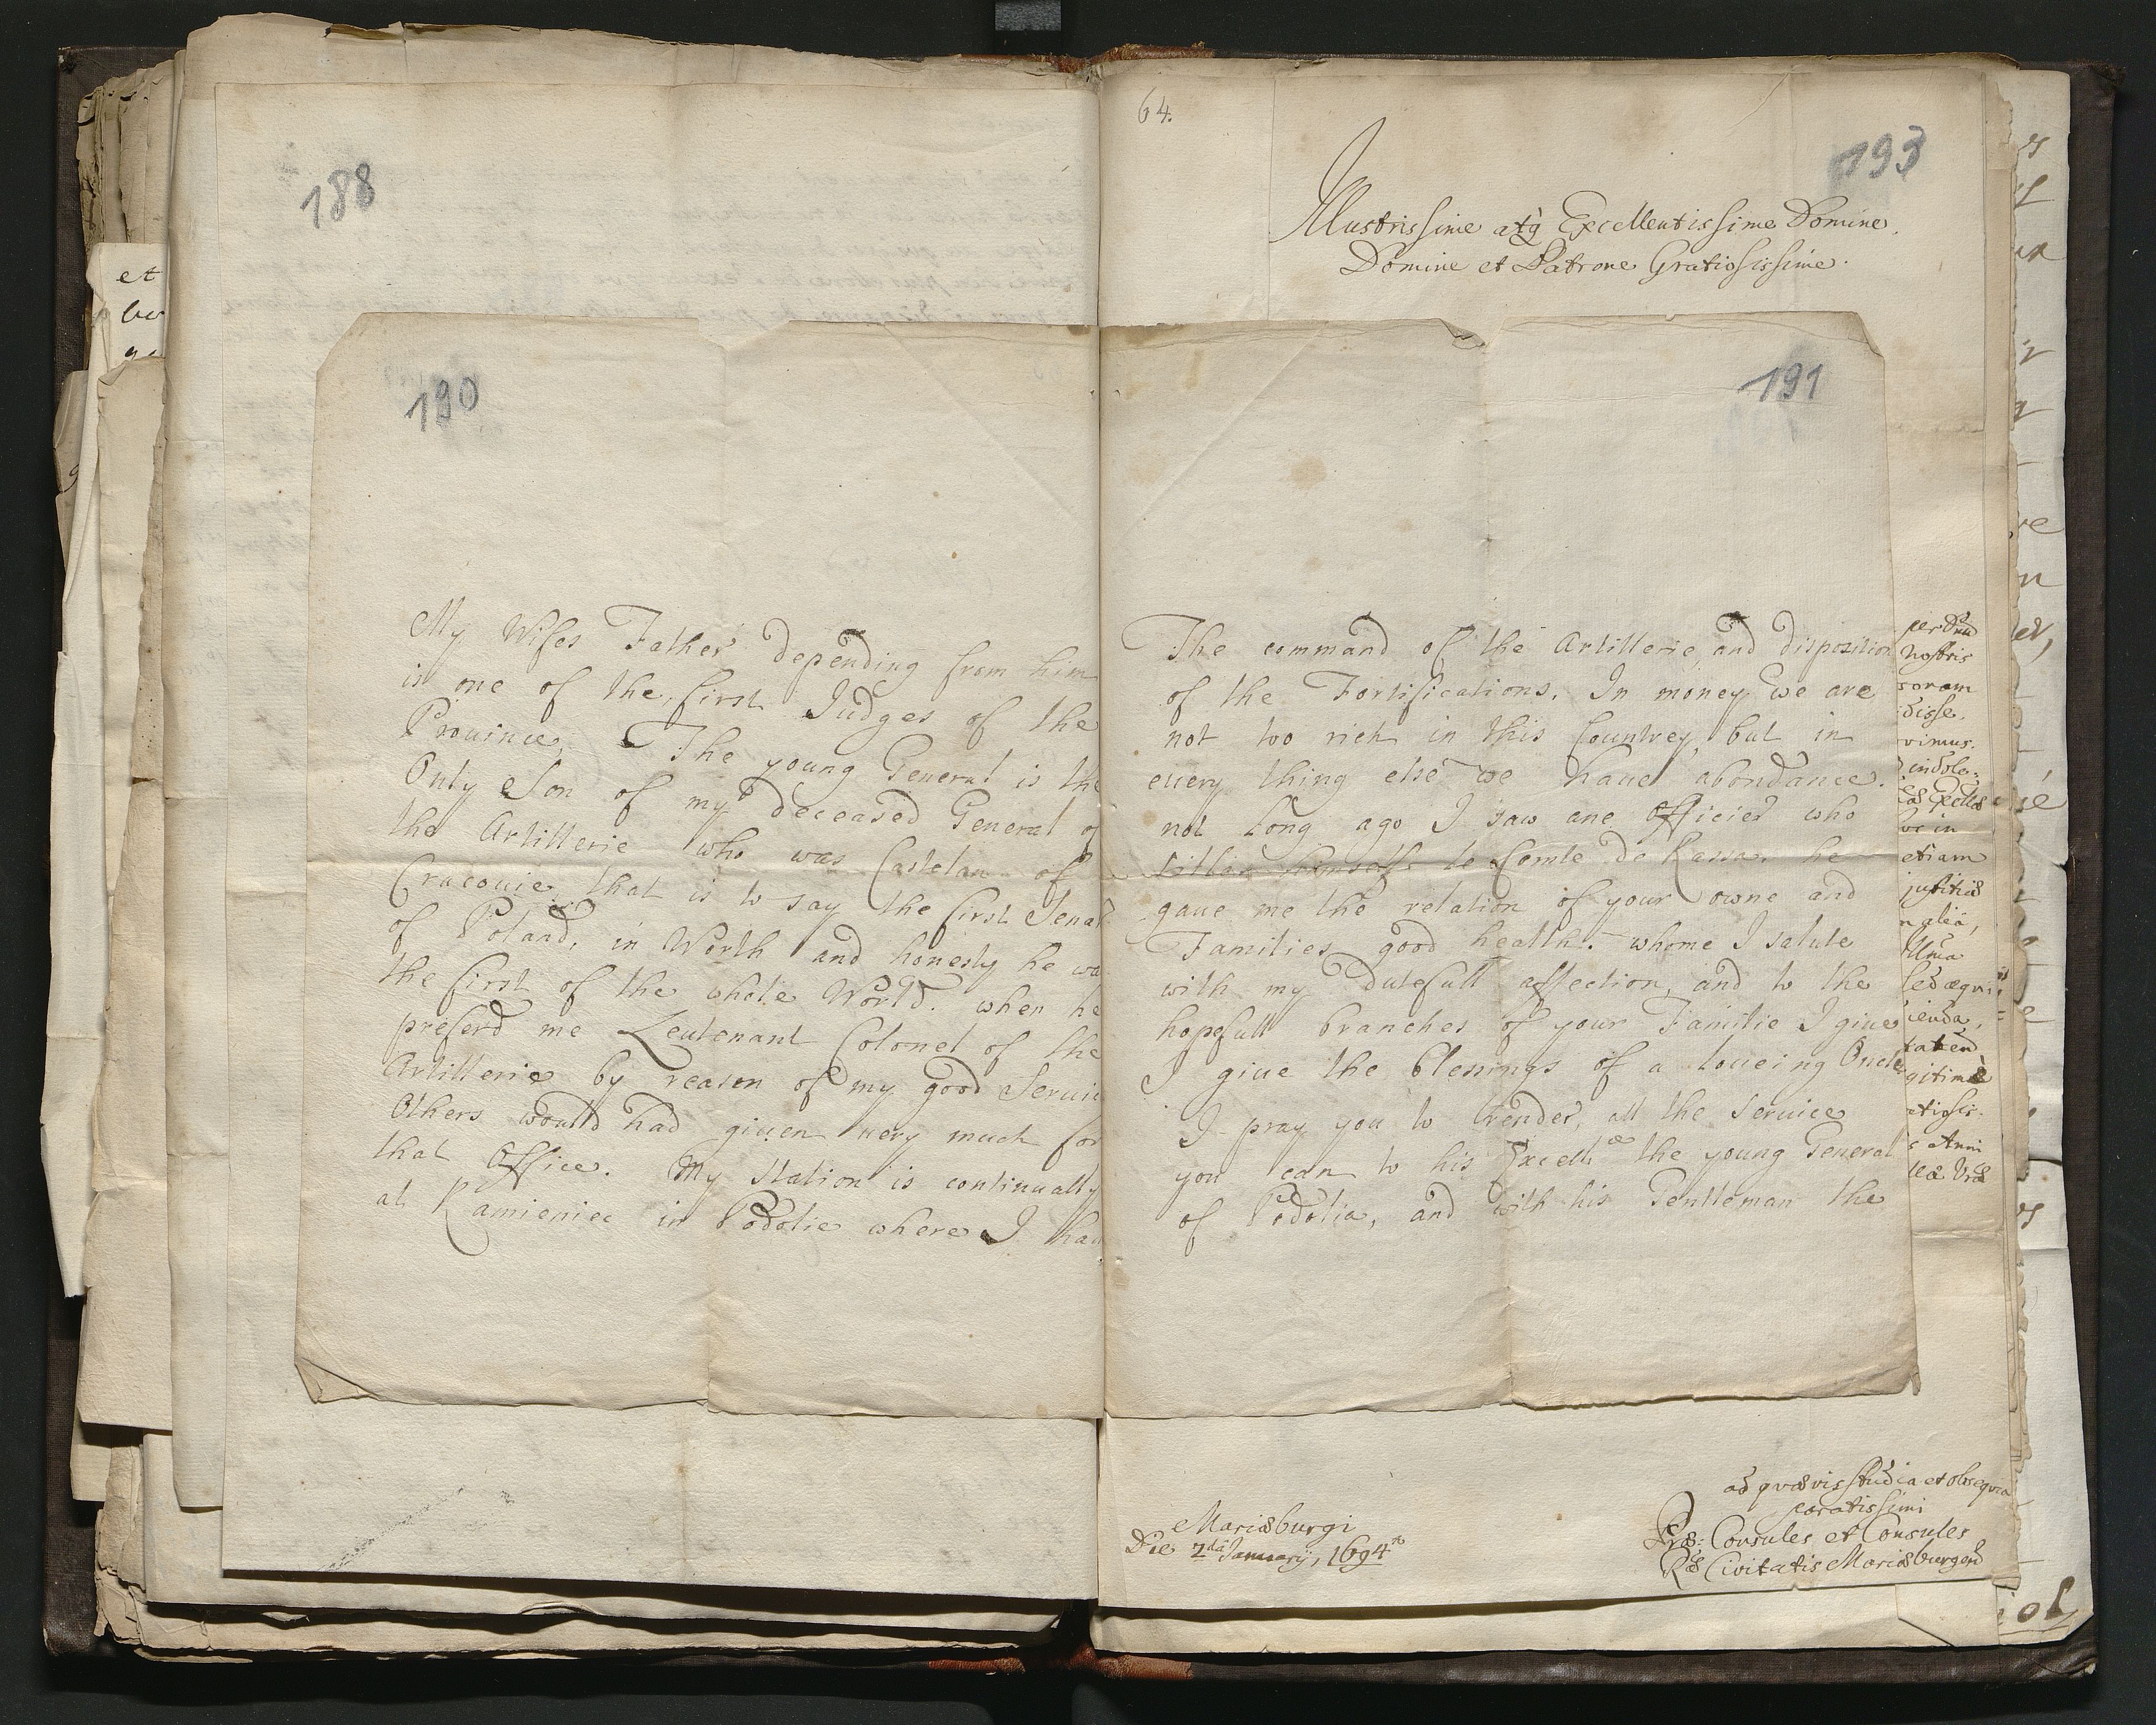 et
188
190
My Wifes Father depending from him
is one of the first Iudges of the
Prouince, The young General is the
Only Son of my deceased General of
the Artillerie who was Castelan of
Cracouie that is to say the first Senat
of Poland, in Worth and honesty he wa
the first of the whole World. when he
preferd me Leutenant Colonel of the
Artillerie by reason of my good Servic
Others would had giuen uery much for
that Office. My station is continually
at Kamieniec in Podolie where I hau
64.
193
Illustrissime atq Excellentissime Domine.
Domine et Patrone Gratiosissime.
191
The command of the Artillerie and disposition
of the Fortifications. In money we are
not too rich in this Countrey, but in
euery thing else we haue abondance.
not long ago I saw ane Officier who
himself le Comte de he
gaue me the relation of your owne and
Families good health. whome I salute
with my dutefull affection, and to the
hopefull branches of your Familie I giue
I giue the blessings of a loueing Oncle
I pray you to render, all the seruice
you can to his Excell: the young General
of Podolia, and with his Gentleman the
nostris
disse.
vimus.
ve in
etiam
justitiæ
ad quævis studia et obsequia
paratissimi
Præ: Consules et Consules
Civitatis Mariæburgen
Mariæburgi
Die 2da January, 1694